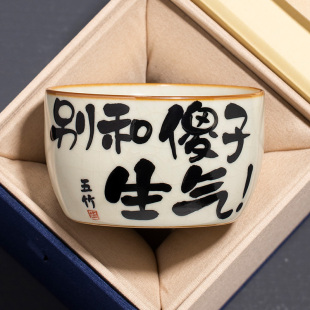 别和傻子
生气!
五竹